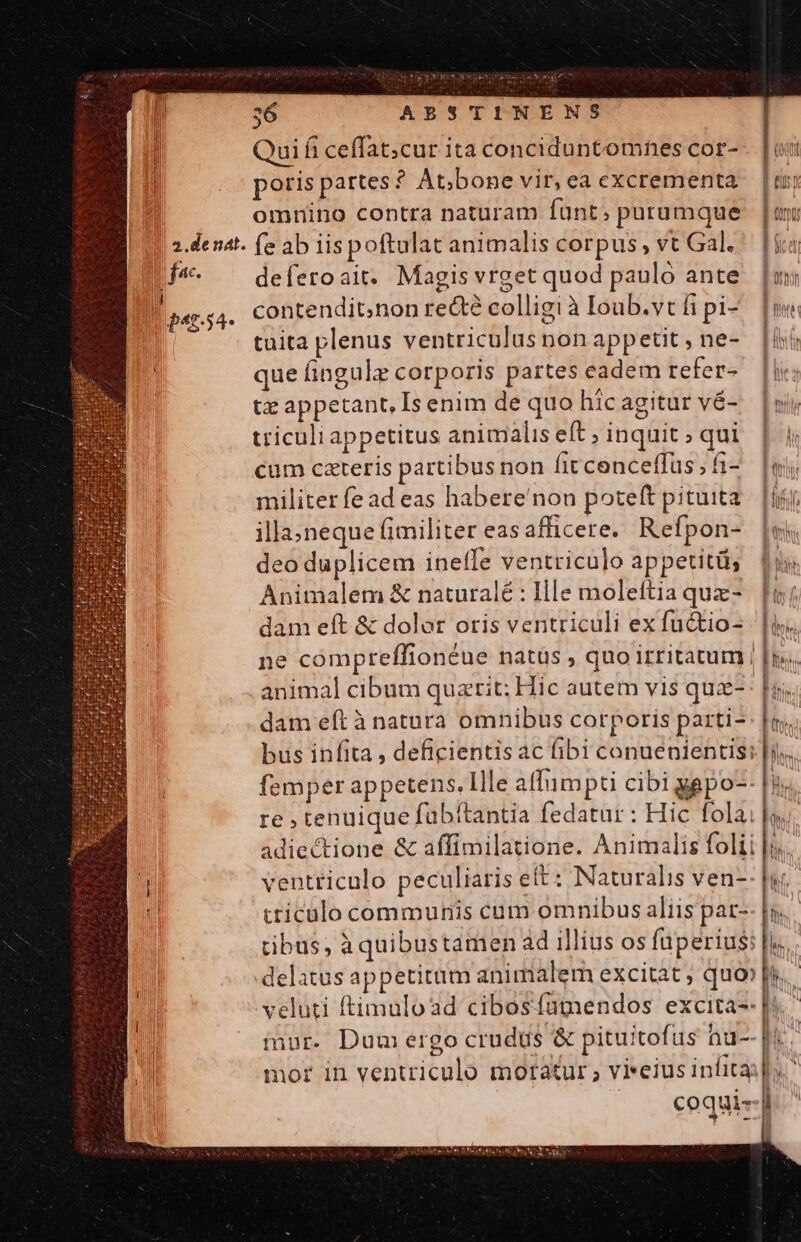 36 ABSTINENS
Qui ſi ceſſat, cur ita concidunt omnes cor-
poris partes? At, bone vir, ea excrementa
omnino contra naturam ſunt, purumque
2.de nat. ſe ab iis poſtulat animalis corpus, vt Gal.
fac. defero ait. Magis vrget quod paulò ante
pag.54. contendit, non rectè colligi à Ioub. vt ſi pi-
tuita plenus ventriculus non appetit, ne-
que ſingulæ corporis partes eadem refer-
tæ appetant, Is enim de quo hîc agitur vé-
triculi appetitus animalis eſt, inquit, qui
cùm cæteris partibus non ſit conceſſus, ſi-
militer ſe ad eas habere non poteſt pituita
illa, neque ſimiliter eas afficere. Reſpon-
deo duplicem ineſſe ventriculo appetitū,
Animalem & naturalé: Ille moleſtia quæ-
dam eſt & dolor oris ventriculi ex ſuctio-
ne compreſſionéue natus, quo irritatum
animal cibum quærit: Hic autem vis quæ-
dam eſt à natura omnibus corporis parti-
bus inſita, deficientis ac ſibi conuenientis
ſemper appetens. Ille aſſumpti cibi vapo-
re, tenuique ſubſtantia ſedatur: Hic ſola
adiectione & aſſimilatione. Animalis ſoli
ventriculo peculiaris eſt: Naturalis ven-
triculo communis cum omnibus aliis par-
tibus, à quibus tamen ad illius os ſuperius
delatus appetitum animalem excitat, quo
veluti ſtimulo ad cibos ſumendos excita-
mur. Dum ergo crudus & pituitoſus hu-
mor in ventriculo moratur, vi eius inſita
coqui-